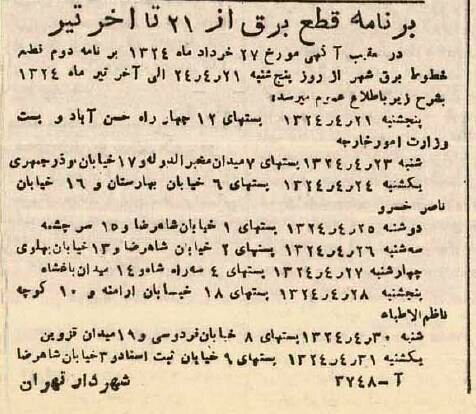 برنامه قطع برق از ۲۱ تا آخر تیر
در عقیب آگهی مورخ ۲۷ خرداد ماه ۱۳۲۴ برنامه دوم قطع
خطوط برق شهر از روز پنجشنبه ۲۱ر۴ر۲۴ الی آخر تیر ماه ۱۳۲۴
بشرح زیر باطلاع عموم میرسد:
پنجشنبه ۲۱ر۴ر۱۳۲۴ پستهای ۱۲ چهار راه حسن آباد و پست
وزارت امور خارجه
شنبه ۲۳ر۴ر۱۳۲۴ پستهای ۷ میدان مخبرالدوله و ۱۷ خیابان بوذرجمهری
یکشنبه ۲۴ر۴ر۱۳۲۴ پستهای ۶ خیابان بهارستان و ۱۶ خیابان
ناصر خسرو
دوشنبه ۲۵ر۴ر۱۳۲۴ پستهای ۱ خیابان شاهرضا و ۱۵ سر چشمه
سه‌شنبه ۲۶ر۴ر۱۳۲۴ پستهای ۲ خیابان شاهرضا و ۱۳ خیابان پهلوی
چهارشنبه ۲۷ر۴ر۱۳۲۴ پستهای ۴ سه راه شاه و ۱۴ میدان باغشاه
پنجشنبه ۲۸ر۴ر۱۳۲۴ پستهای ۱۸ خیابان ارامنه و ۱۰ کوچه
ناظم الاطباء
شنبه ۳۰ر۴ر۱۳۲۴ پستهای ۸ خیابان فردوسی و ۱۹ میدان قزوین
یکشنبه ۳۱ر۴ر۱۳۲۴ پستهای ۹ خیابان ثبت اسناد و ۳ خیابان شاهرضا
آ-۳۷۴۸ شهردار تهران